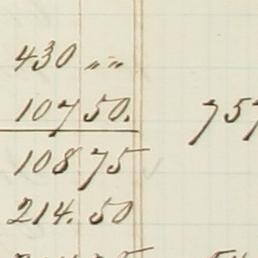 430 „ „
107 50. 757
108 75
214. 50